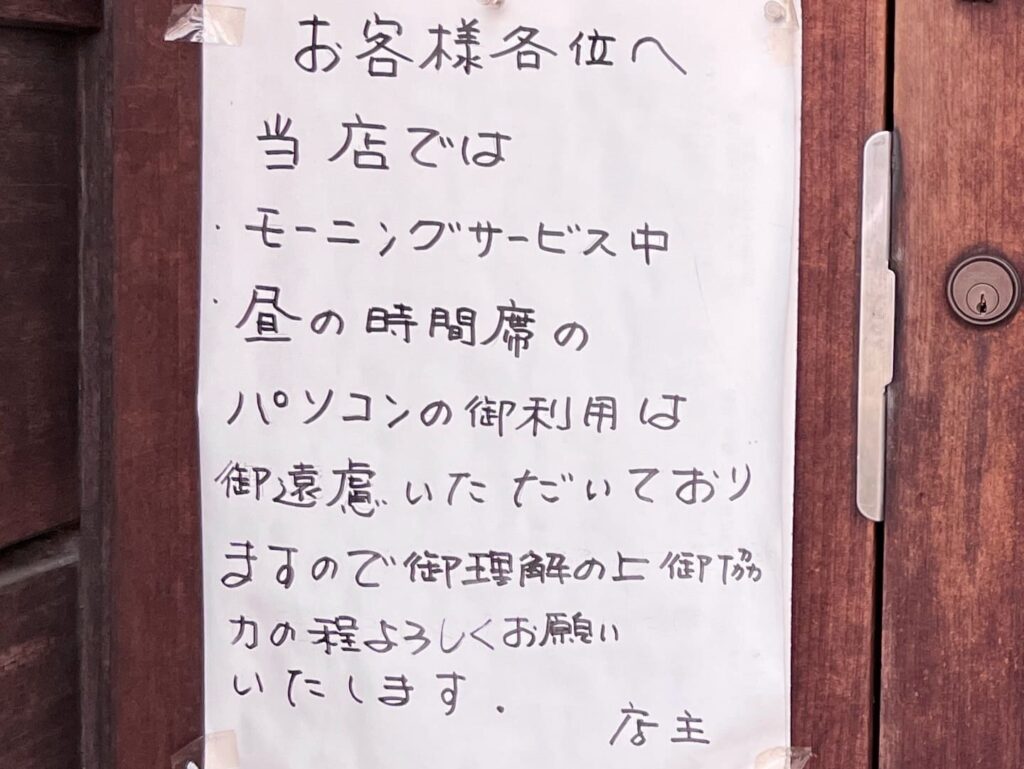 お客様各位へ
当店では
・モーニングサービス中
・昼の時間席の
パソコンの御利用は
御遠慮いただいており
ますので御理解の上御協
力の程よろしくお願い
いたします.
店主